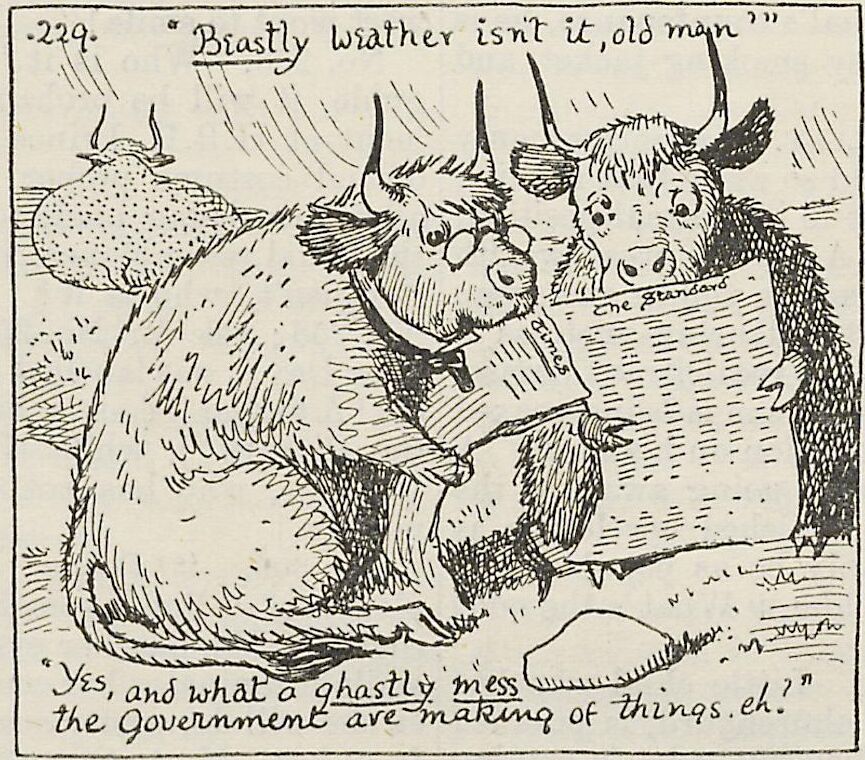 .229. "Beastly weather isn't it, old man"
The Standard
Times
"Yes, and what a ghastly mess
the Government are making of things. eh?"